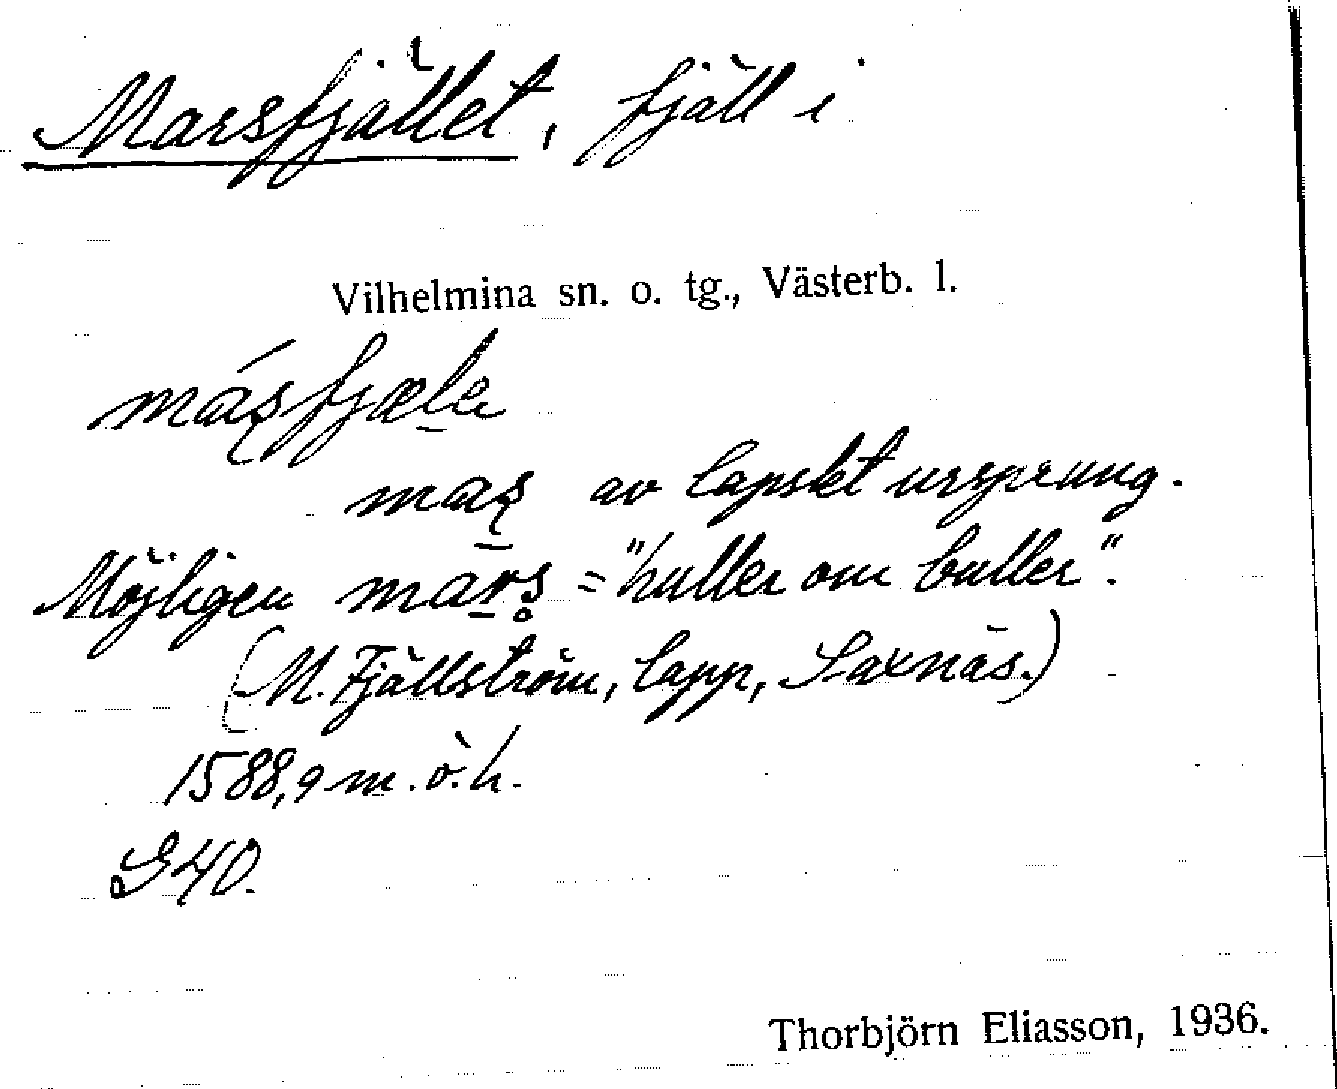 Marsfjället, fjäll i
Vilhelmina sn. o. tg., Västerb. l.
máʂfjælₑ
maʂ av lapskt ursprung.
Möjligen marʂ̥ = "huller om buller".
(M. Fjällström, lapp, Saxnäs.)
1588,9 m. ö. h.
G40.
Thorbjörn Eliasson, 1936.